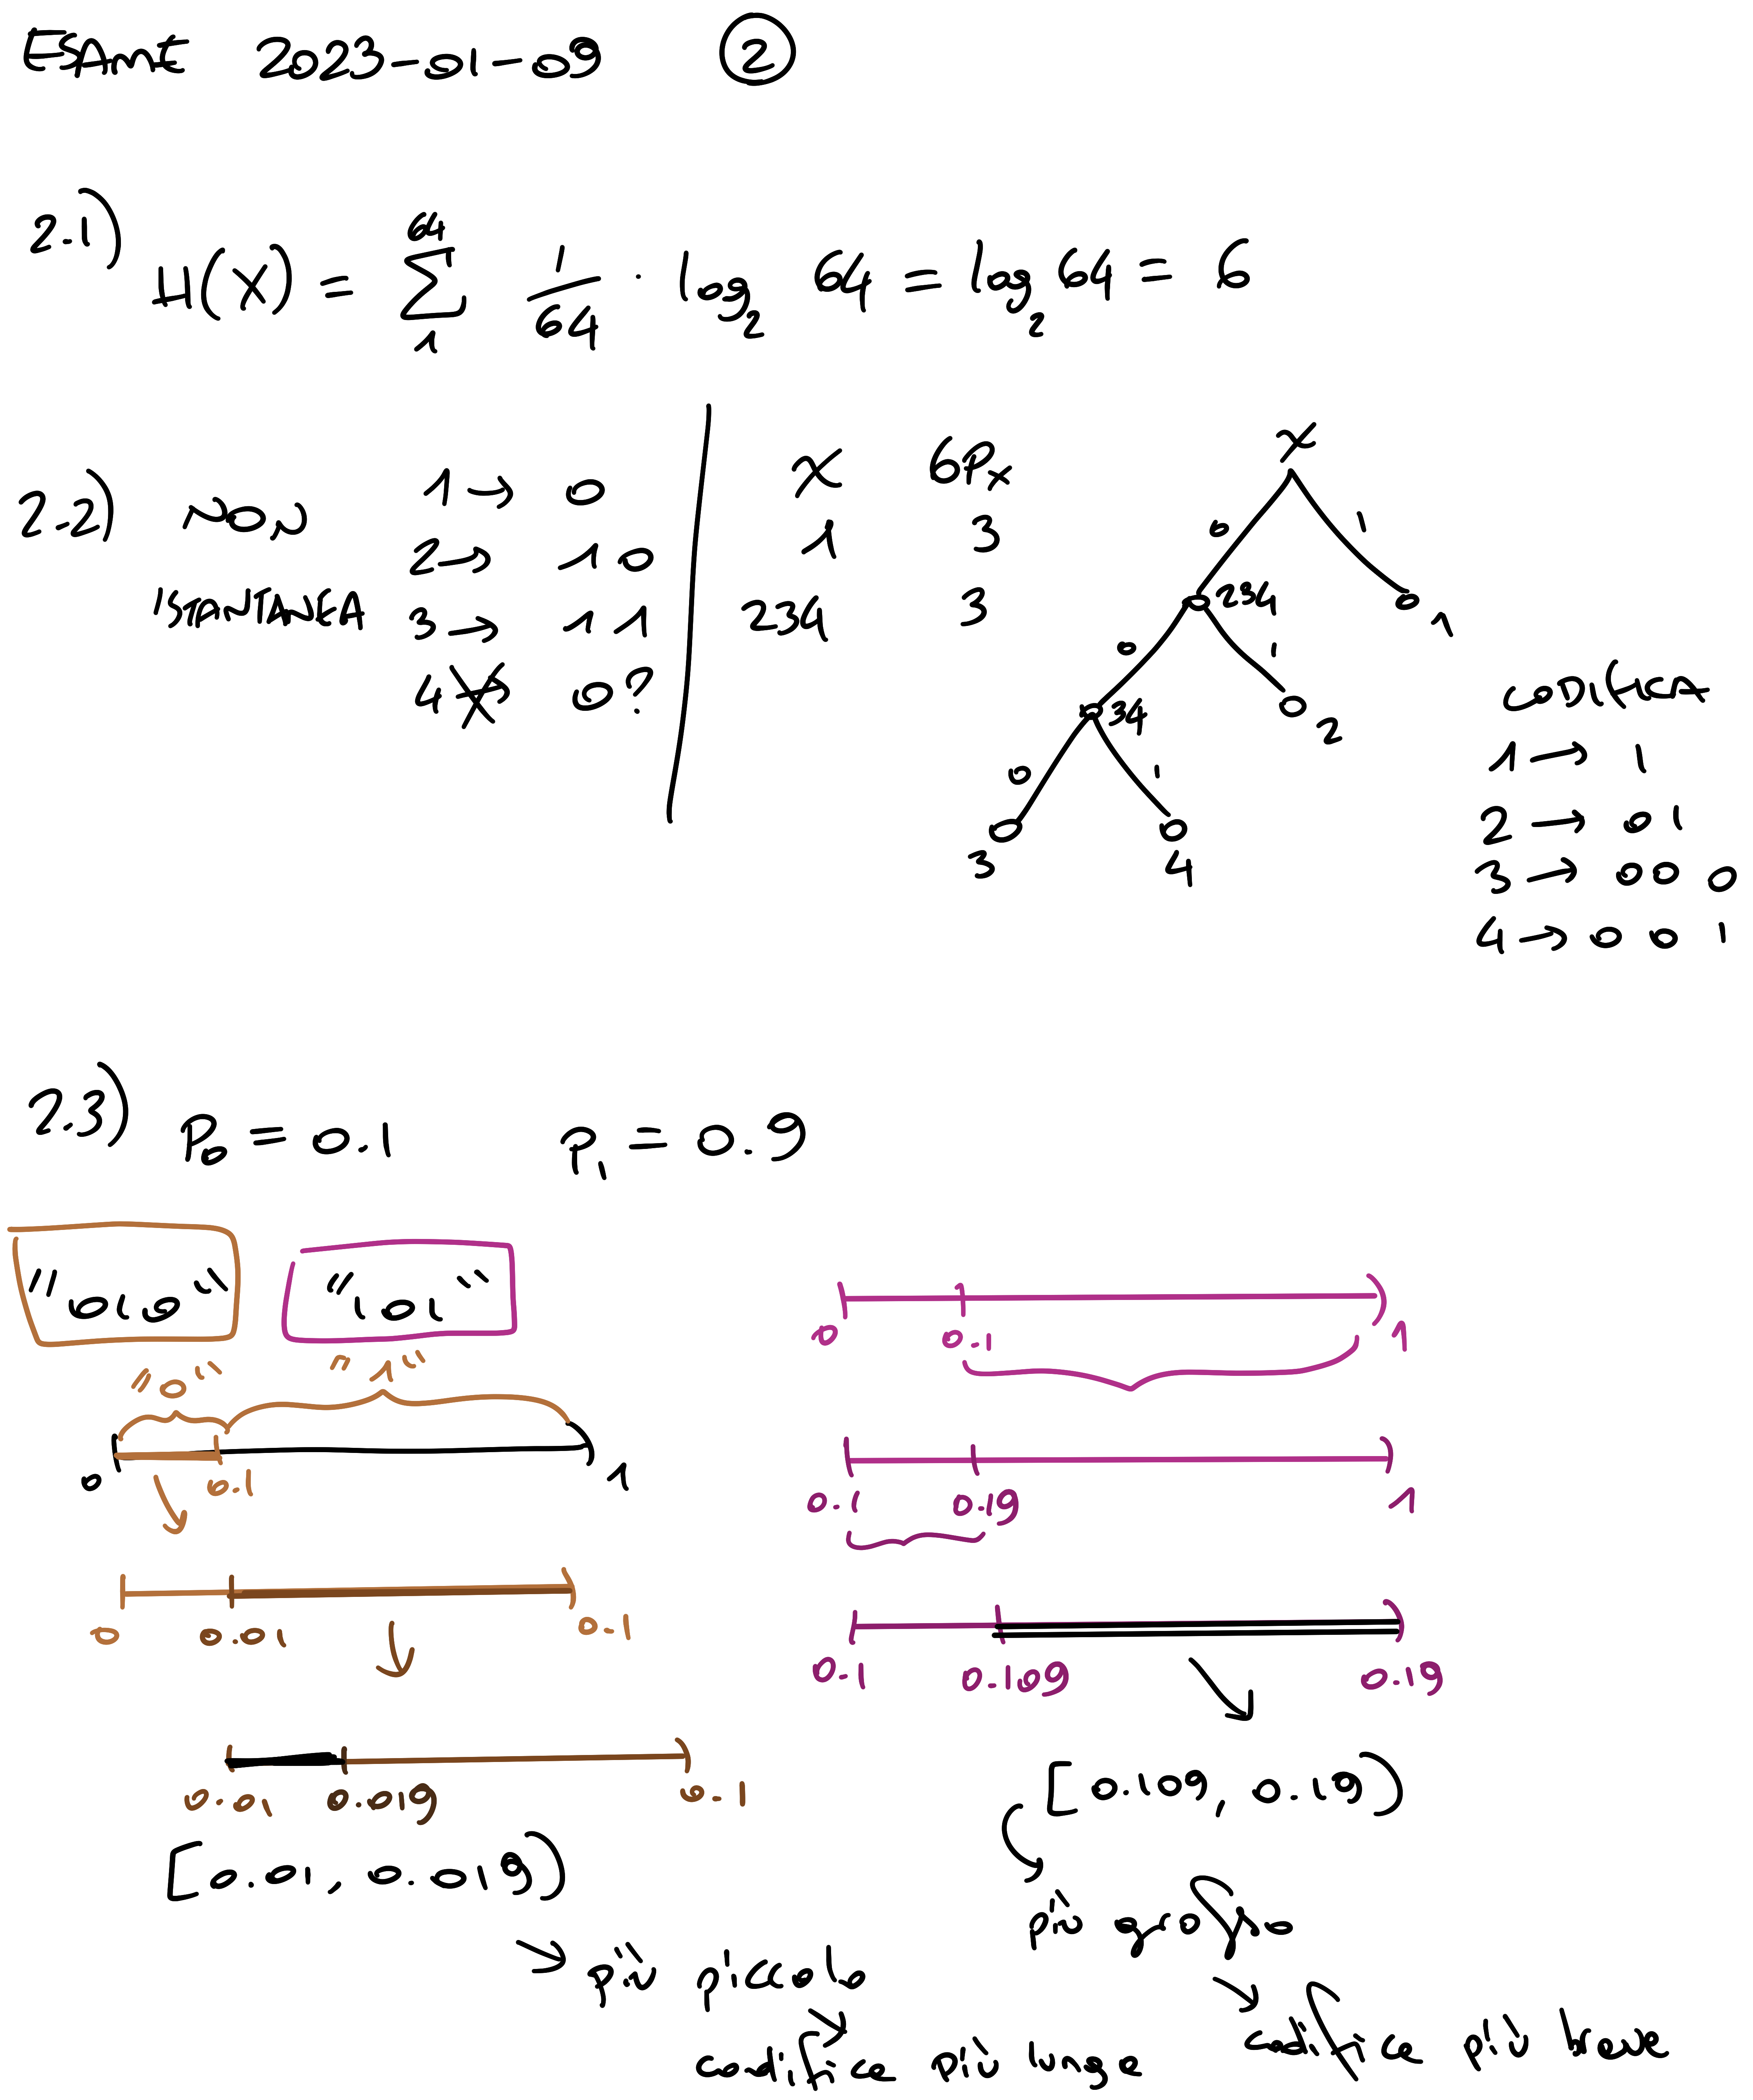 ESAME 2023-01-09 ②
2.1)
H(X) = ∑ 1/64 · log₂ 64 = log₂ 64 = 6
64
1
2.2) NON
ISTANTANEA
1 → 0
2 → 10
3 → 11
4 → 0?
X 6Pₓ
1 3
234 3
X
0 1
234 1
0 1
34 2
0 1
3 4
CODIFICA
1 → 1
2 → 01
3 → 000
4 → 001
2.3) P₀ = 0.1 P₁ = 0.9
"010" "101"
"0" "1"
0 0.1 1
0 0.01 0.1
0.01 0.019 0.1
[0.01, 0.019)
→ più piccolo
codifica più lunga
0 0.1 1
0.1 0.19 1
0.1 0.109 0.19
[0.109, 0.19)
più grosso
codifica più breve